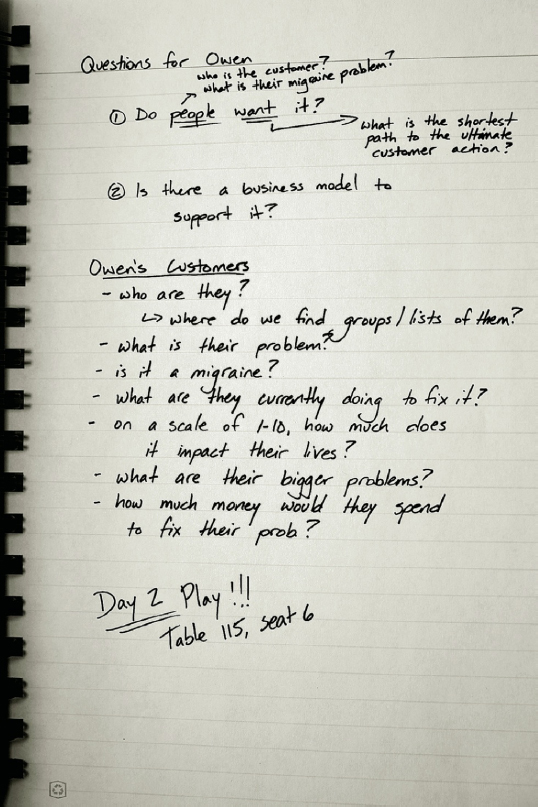 Questions for Owen
who is the customer?
what is their migraine problem?
① Do people want it?
what is the shortest
path to the ultimate
customer action?
② Is there a business model to
support it?
Owen's Customers
- who are they?
↳ where do we find groups/lists of them?
- what is their problem?*
- is it a migraine?
- what are they currently doing to fix it?
- on a scale of 1-10, how much does
it impact their lives?
- what are their bigger problems?
- how much money would they spend
to fix their prob?
Day 2 Play!!!
Table 115, seat 6